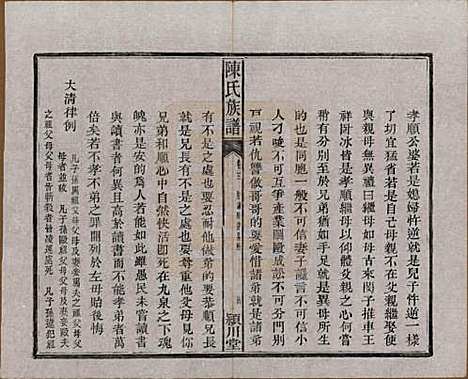 孝順公婆若是媳婦忤逆就是兒子忤逆一樣
了切宜猛省若是自己母親不在父親繼娶便
與親母無異曰繼母如母古來閔子推車王
祥臥冰皆是孝順繼母仰體父親之心何嘗
稍有分別至於兄弟痛如手足雖有
的是同胞一般不可信妻子讒言不可信小
人刁唆不可互爭產業鬭毆成訟不可分門別
戶視若仇讐做哥哥的要愛惜諸弟諸弟
陳氏族譜
潁川堂
有不是之處也要恕他做弟的要恭順兄長
就是兄長有不是之處也要尊重他父母見你
兄弟和順心上自然快活即死在九泉之下魂
魄亦是安的為人若能如此雖愚民未嘗讀書
與讀書者何異且高於讀書而不能孝弟者萬
倍矣若不孝不弟之罪開列於左
大清律例
凡子孫罵祖父母父母及妻妾罵夫之祖父母父
母者並絞
凡子孫毆祖父母父母及妻妾毆夫
之祖父母父母者皆斬殺者皆凌遲處死
凡子孫違犯祖